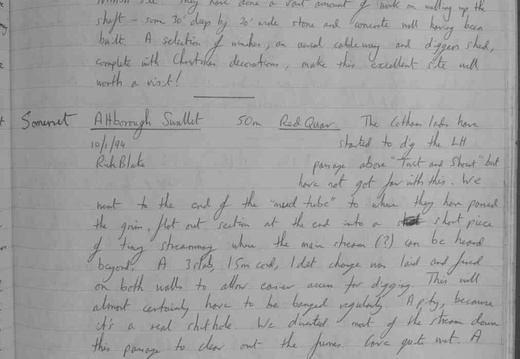 They have done a vast amount of work on walling up the
shaft - some 30' deep by 20' wide stone and concrete wall having been
built. A selection of winches, an aerial cableway and diggers shed,
complete with Christmas decorations, make this excellent site well
worth a visit!
Somerset Attborough Swallet 50m Red Quar. The Cotham lads have
10/1/94 started to dig the LH
Rich Blake passage above "Twist and Shout" but
have not got far with this. We
went to the end of the "mud tube" to where they have passed
the grim, flat out section at the end into a short piece
of tiny streamway where the main stream (?) can be heard
beyond. A 3 slab, 15m cord, 1 det charge was laid and fired
on both walls to allow easier access for digging. This will
almost certainly have to be banged regularly. A pity, because
it's a real shithole. We diverted most of the stream down
this passage to clear out the fumes. Cave quite wet. A